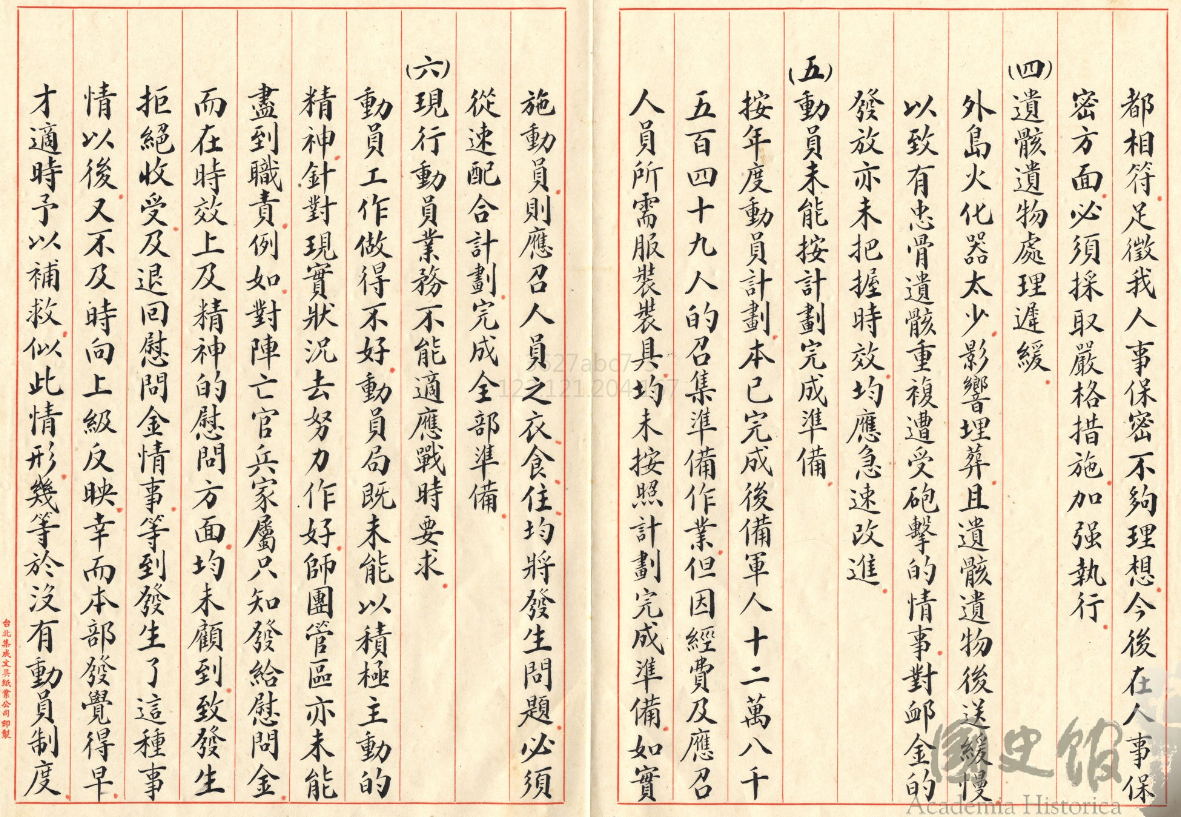 都相符足徵我人事保密不夠理想今後在人事保
密方面必須採取嚴格措施加强執行
(四)遺骸遺物處理遲緩
外島火化器太少影響埋葬且遺骸遺物後送緩慢
以致有忠骨遺骸重複遭受砲擊的情事對卹金的
發放亦未把握時效均應急速改進
(五)動員未能按計劃完成準備
按年度動員計劃本已完成後備軍人十二萬八千
五百四十九人的召集準備作業但因經費及應召
人員所需服裝裝具均未按照計劃完成準備如實
施動員則應召人員之衣食住均將發生問題必須
從速配合計劃完成全部準備
(六)現行動員業務不能適應戰時要求
動員工作做得不好動員局既未能以積極主動的
精神針對現實狀況去努力作好師團管區亦未能
盡到職責例如對陣亡官兵家屬只知發給慰問金
而在時效上及精神的慰問方面均未顧到致發生
拒絕收受及退回慰問金情事等到發生了這種事
情以後又不及時向上級反映幸而本部發覺得早
才適時予以補救似此情形幾等於沒有動員制度
台北集成文具紙業公司印製
國史館
Academia Historica